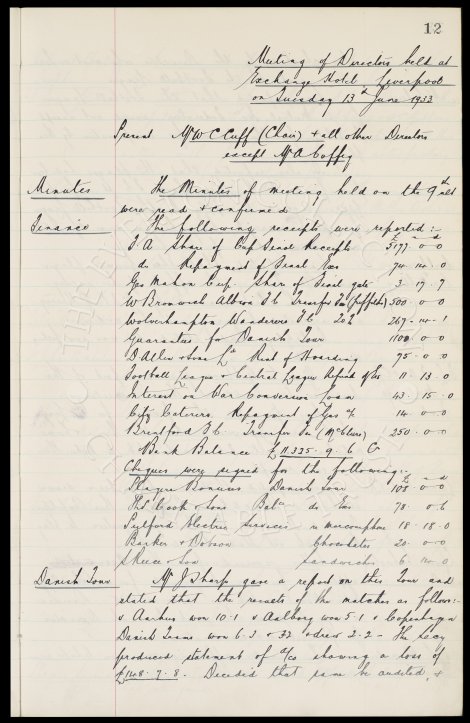 12
Meeting of Directors held at
Exchange Hotel Liverpool
on Tuesday 13th June 1933
Present Mr W C Cuff (Chair) + all other Directors
except Mr A Coffey
Minutes The Minutes of meeting held on the 9th ult
were read + confirmed
Finance The following receipts were reported :-
F.A Share of Cup Final Receipts £5177-0-0
do Repayment of Final Exs
Geo Mahon Cup. Share of Final gate 3-17-7
W Bromwich Albion F.C Transfer 500-0-0
Wolverhampton Wanderers F.C 20% 267-14-1
Guarantee for Danish Tour 1100-0-0
D Allen + Sons Ltd Rent of Hoarding 75-0-0
Football League + Central League Refund of Exs 11-13-0
Interest on War Conversion Loan 43-15-0
City Caterers Repayment of Gas a/c 14-0-0
Brentford F.C. Transfer Fee (McClure) 250-0-0
Bank Balance £11335-9-6 Cr
Cheques were signed for the following :-
Players Bonuses Danish Tour 108-0-0
Thos Cook + Sons Balce do Exs 78-0-6
Pulford Electric Services 18-18-0
Barker + Dobson Chocolates 20-0-0
Sandwiches
Danish Tour Mr J Sharp gave a report on this Tour and
stated that the results of the matches as follows:-
v Aarhus won 10-1 v Aalborg won 5-1 v Copenhagen
Danish Teams won 6-2 + 3-2 + drew 2-2 - The Secy
produced statement of a/cs showing a loss of
£148-7-8. Decided that same be audited, +